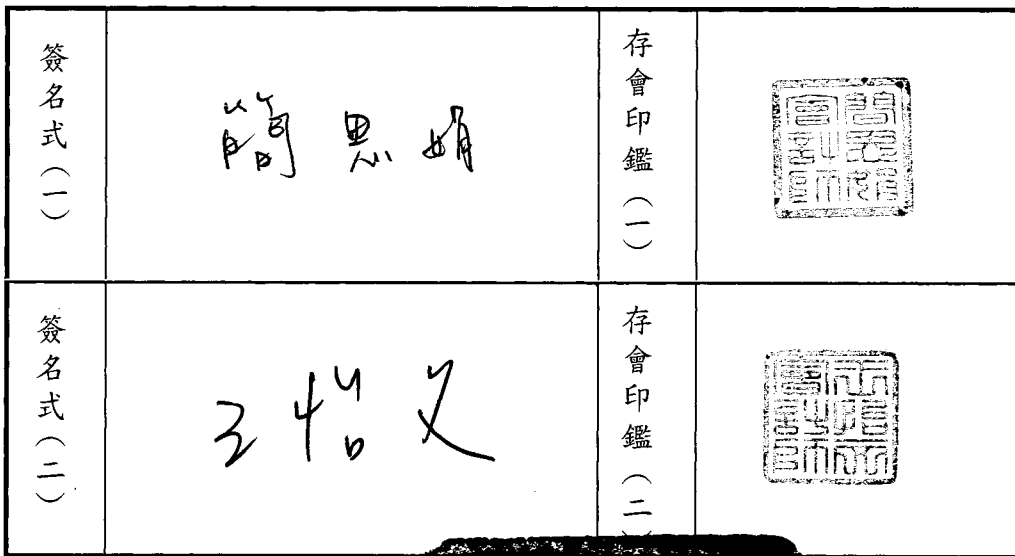 簽名式（一）
簡思娟
存會印鑑（一）
簡思娟會計師
簽名式（二）
王怡文
存會印鑑（二）